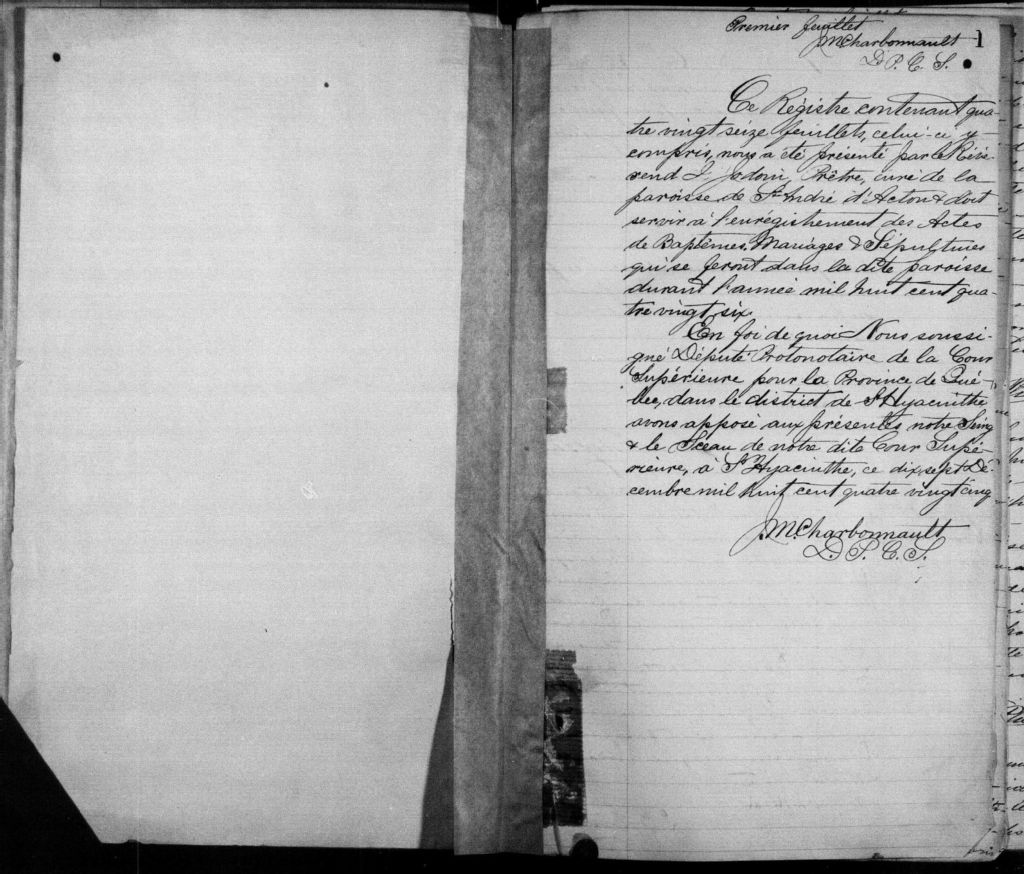 Premier feuillet
JMCharbonnault
D. P. C. S.
1
Ce Régistre contenant qua-
tre vingt seize feuillets, celui-ci y
compris, nous a été présenté par le Révé-
rend I. Jodoin, Prêtre, curé de la
paroisse de St André d'Acton & doit
servir à l'enrégistrement des Actes
de Baptêmes, Mariages & Sépultures
qui se feront dans la dite paroisse
durant l'année mil huit cent qua-
tre vingt six.
En foi de quoi Nous soussi-
gné Député Protonotaire de la Cour
Supérieure pour la Province de Qué-
bec, dans le district de St Hyacinthe
avons apposé aux présentes notre Seing
& le Sceau de notre dite Cour Supé-
rieure, à St Hyacinthe, ce dix sept Dé-
cembre mil huit cent quatre vingt cinq
JMCharbonnault
D. P. C. S.